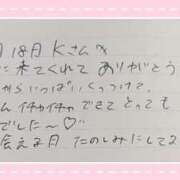 月18月 Kさん
に来てくれて ありがとう
からいっぱいくっつけて、
ん イチャイチャ できて とっても
でした〜♡
会える日 たのしみにして